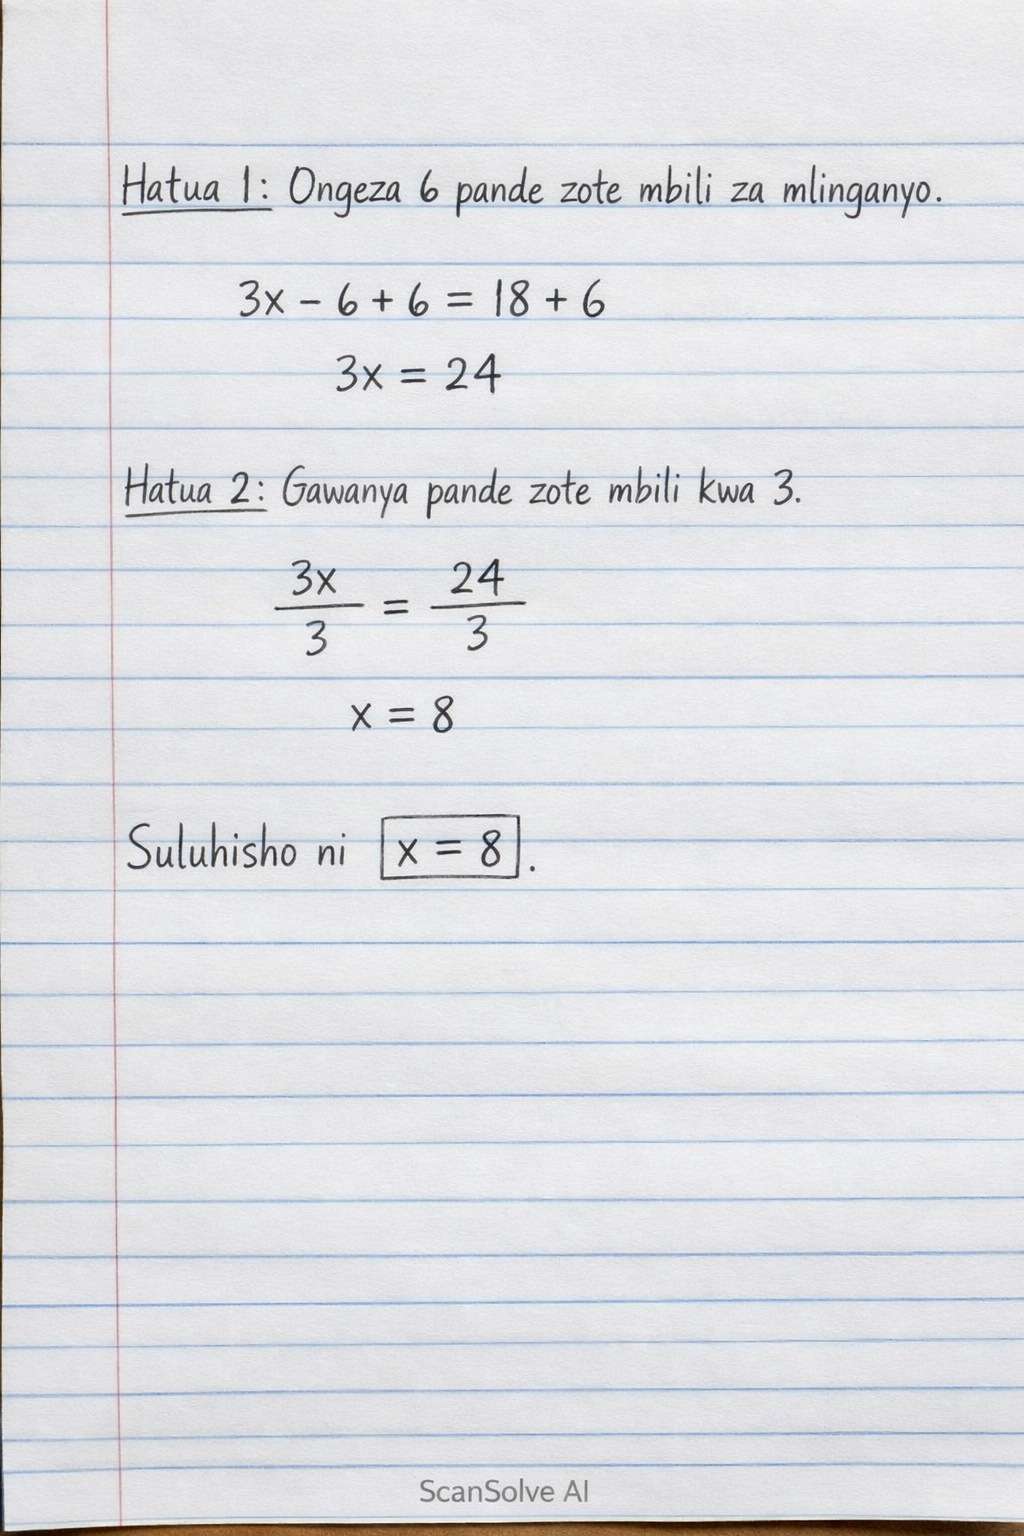 Hatua 1: Ongeza 6 pande zote mbili za mlinganyo.
3x - 6 + 6 = 18 + 6
3x = 24
Hatua 2: Gawanya pande zote mbili kwa 3.
3x/3 = 24/3
x = 8
Suluhisho ni x = 8.
ScanSolve AI